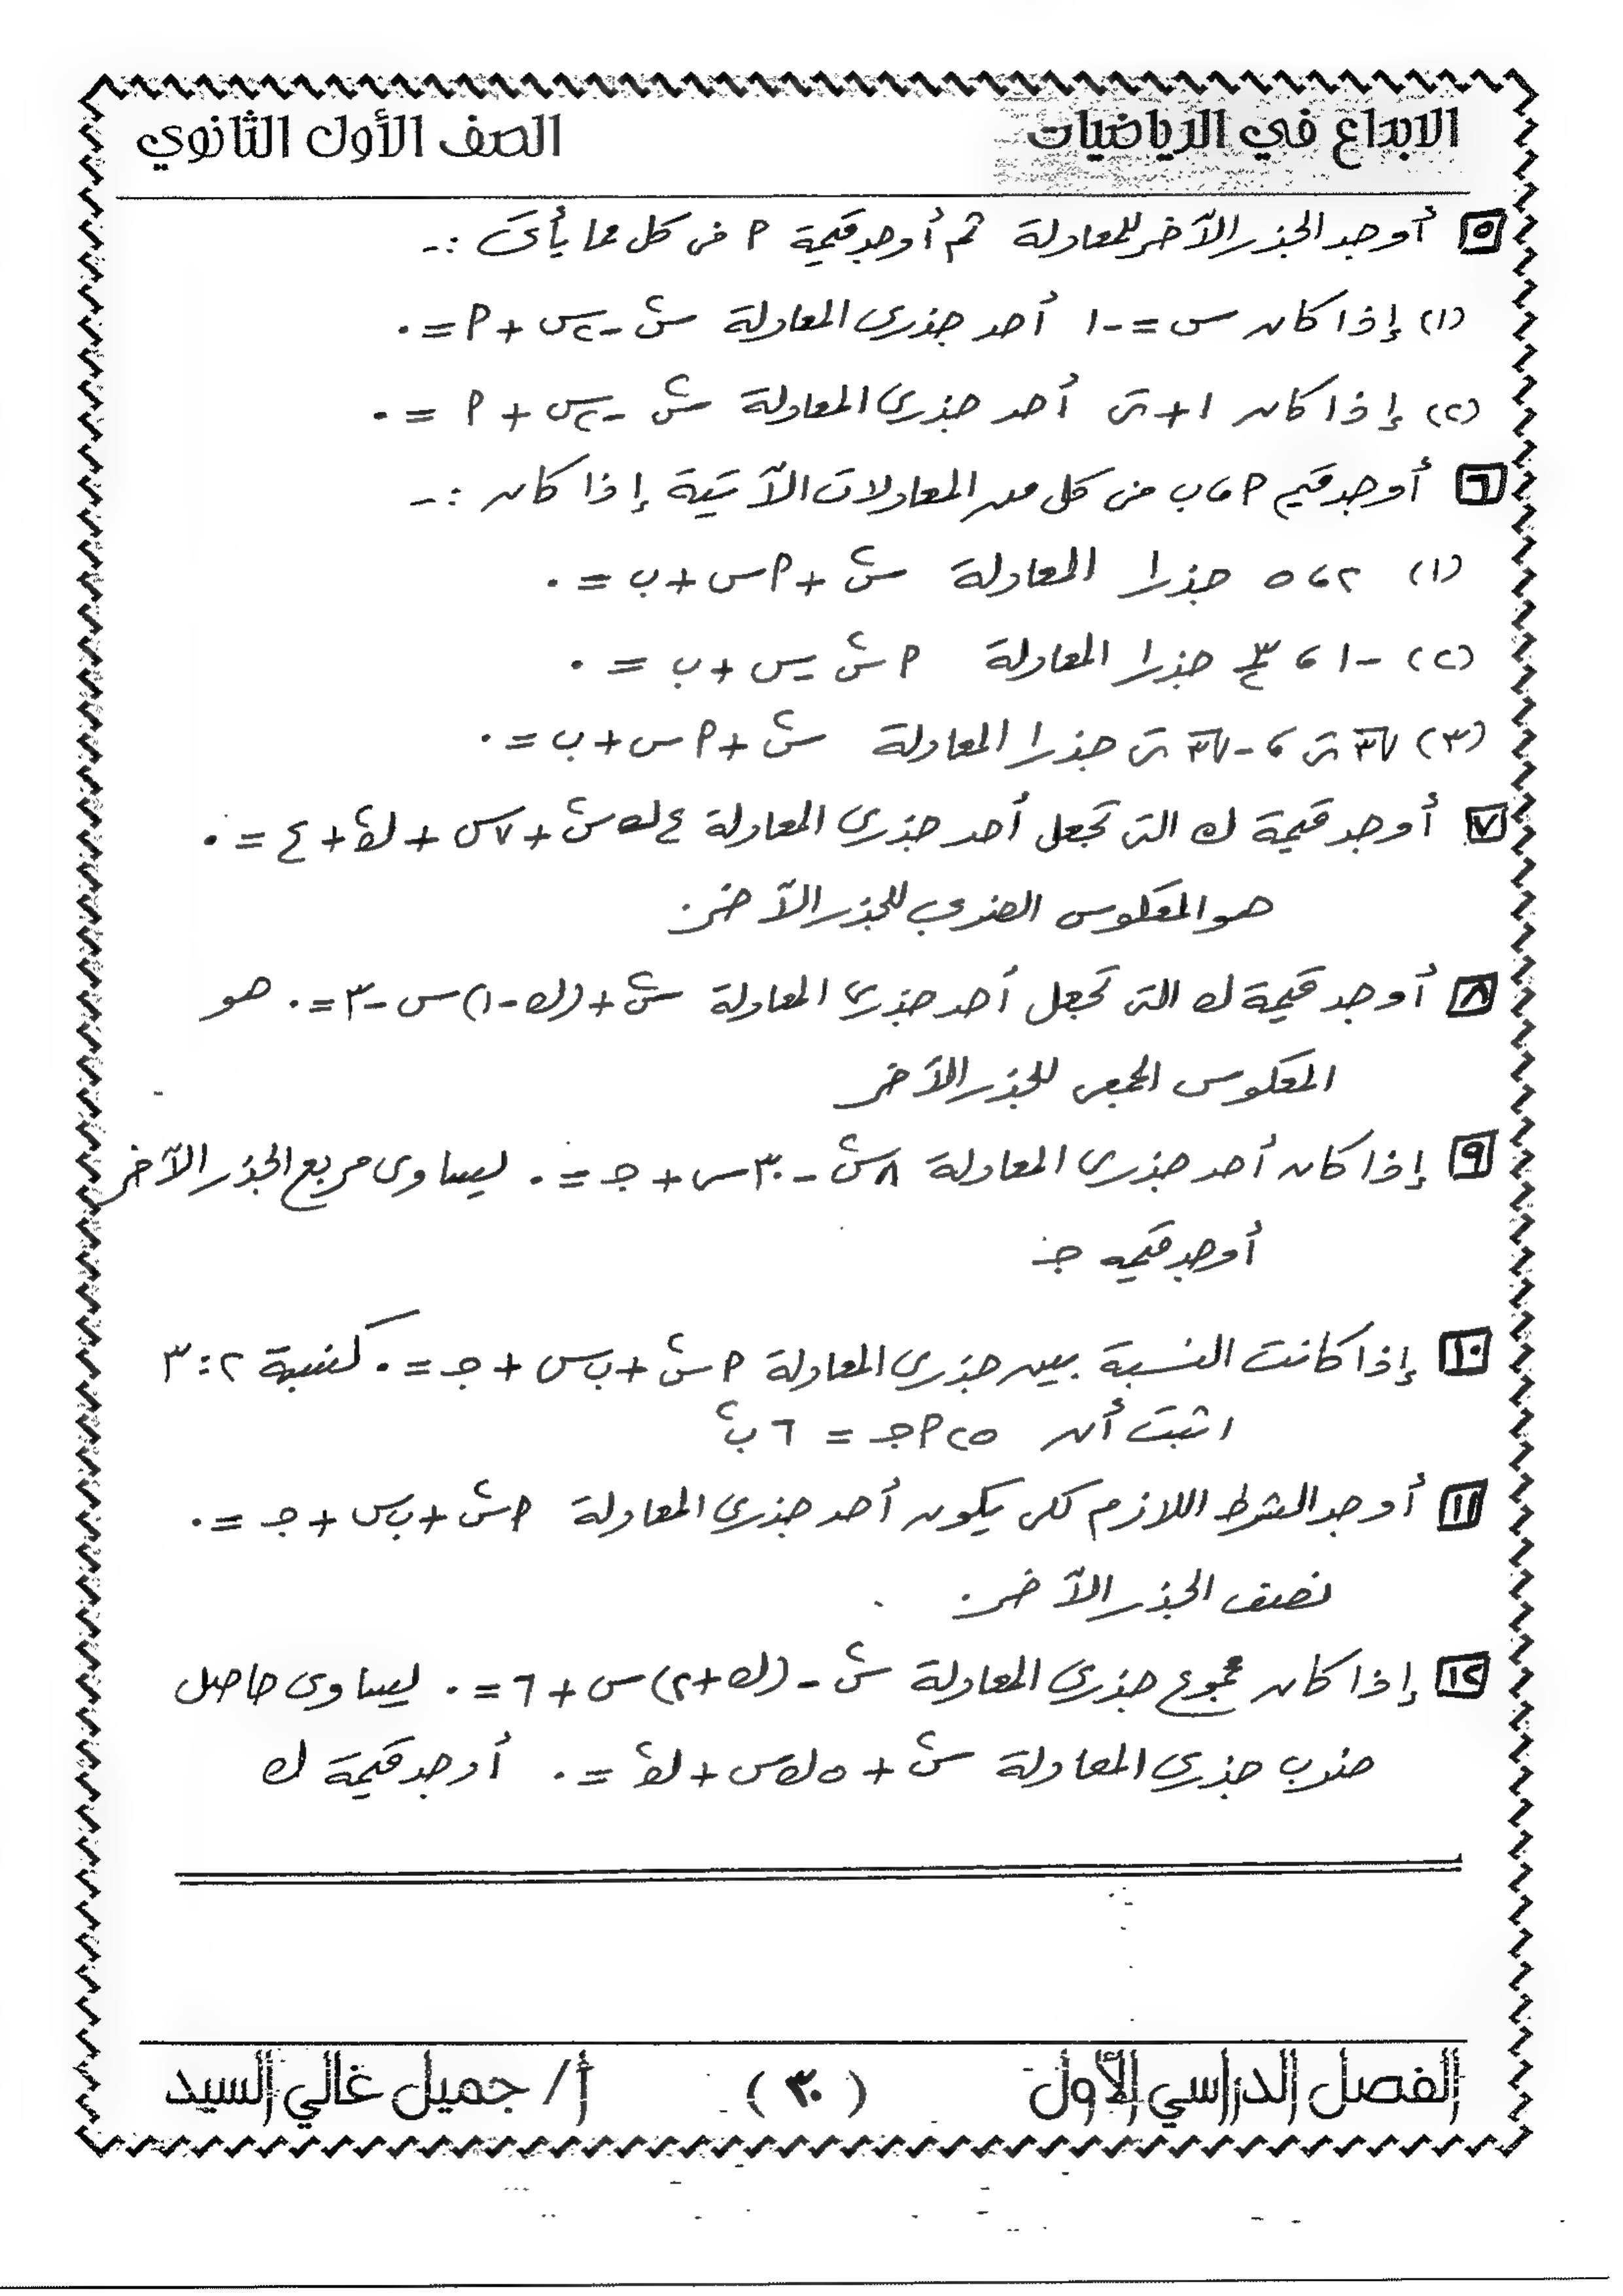 الابداع في الرياضيات الصف الأول الثانوي
٥ أوجد الجذر الآخر للمعادلة ثم أوجد قيمة P فى كل مما يأتى :-
(١) إذا كان س = -١ أحد جذرى المعادلة س² - ٢س + P = ٠
(٢) إذا كان ١ + ت أحد جذرى المعادلة س² - ٢س + P = ٠
٦ أوجد قيم P ، ب فى كل من المعادلات الآتية إذا كان :-
(١) ٢ ، ٥ جذرا المعادلة س² + P س + ب = ٠
(٢) -١ ، ٣/٢ جذرا المعادلة P س² - س + ب = ٠
(٣) √٣ ت ، -√٣ ت جذرا المعادلة س² + P س + ب = ٠
٧ أوجد قيمة ك التى تجعل أحد جذرى المعادلة ٤ك س² + ٧س + ك² + ٤ = ٠
هو المعكوس الضربى للجذر الآخر.
٨ أوجد قيمة ك التى تجعل أحد جذرى المعادلة س² + (ك - ١) س - ٣ = ٠ هو
المعكوس الجمعى للجذر الآخر
٩ إذا كان أحد جذرى المعادلة ٨س² - ٣٠س + جـ = ٠ يساوى مربع الجذر الآخر
أوجد قيمه جـ
١٠ إذا كانت النسبة بين جذرى المعادلة P س² + ب س + جـ = ٠ كنسبة ٢ : ٣
اثبت أن ٢٥ P جـ = ٦ ب²
١١ أوجد الشرط اللازم لكى يكون أحد جذرى المعادلة P س² + ب س + جـ = ٠
نصف الجذر الآخر.
١٢ إذا كان مجموع جذرى المعادلة س² - (ك + ٢) س + ٦ = ٠ يساوى حاصل
ضرب جذرى المعادلة س² + ٥ك س + ك² = ٠ أوجد قيمة ك
الفصل الدراسي الأول ( ٣٠ ) أ/ جميل غالي السيد